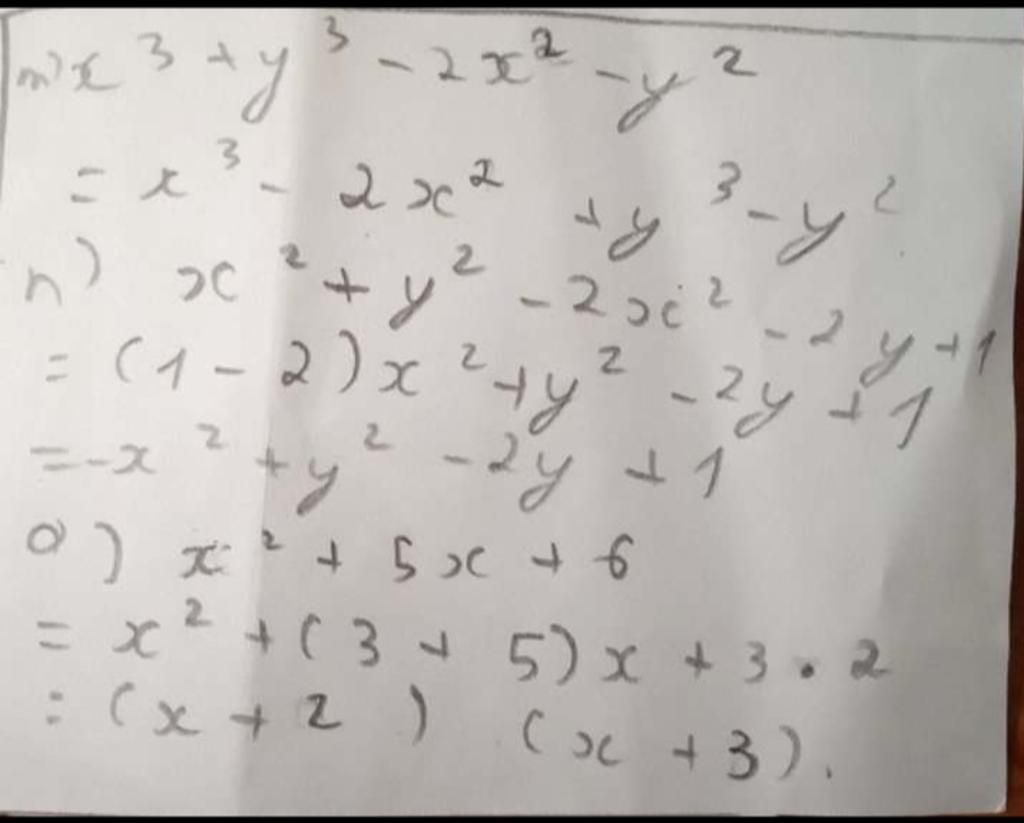 m) x³ + y³ - 2x² - y²
= x³ - 2x² + y³ - y²
n) x² + y² - 2x² - 2y + 1
= (1 - 2)x² + y² - 2y + 1
= -x² + y² - 2y + 1
o) x² + 5x + 6
= x² + (3 + 5)x + 3 . 2
= (x + 2) (x + 3).